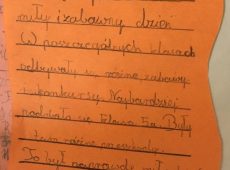 miły i zabawny dzień
W poszczególnych klasach
odbywały się różne zabawy
i konkursy. Najbardziej
podobała się klasa 5a. Były
tam różne
To był naprawdę